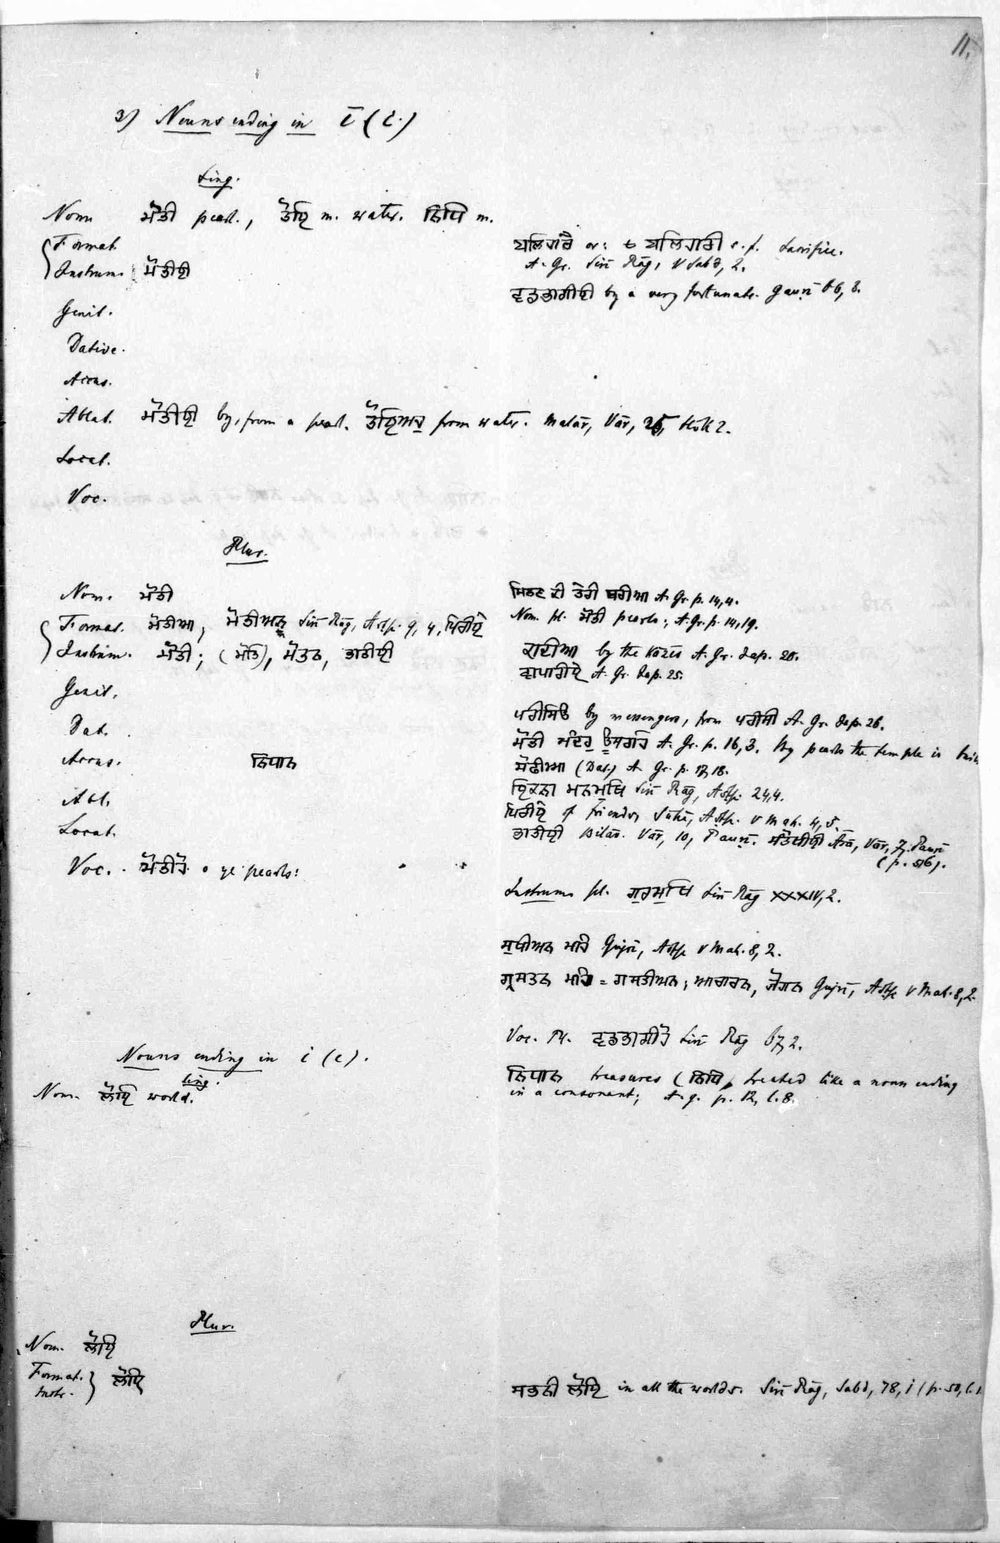 11.
3) Nouns ending in ī (i.)
Sing.
Nom. ਮੋਤੀ pearl., ਤੋਇ m. water. ਨਿਧਿ m.
Format.
Instrum. ਮੋਤੀਈ
Genit.
Dative.
Accus.
Ablat. ਮੋਤੀਈ by, from a pearl. ਤੋਇਅਹੁ from water. Malār, Vār, 25, 2.
Local.
Voc.
ਬਲਿਹਾਰੈ or: ਬਲਿਹਾਰੀ s.f. sacrifice.
A. Gr. Siri Rāg, V Sabd, 2.
ਵਡਭਾਗੀਈ by a very fortunate. Gauṛī 8.
Plur.
Nom. ਮੋਤੀ
Format. ਮੋਤੀਆ, Siri Rāg, Asṭp. 9, 4,
Instrum. ਮੋਤੀ; (ਮੋਤਿ), ਮੋਤਨ, ਭਾਤੀਈ
Genit.
Dat.
Accus. ਨਿਧਾਨ
Abl.
Local.
Voc. ਮੋਤੀਹੋ o ye pearls!
ਮਿਲਣ ਕੀ ਤੇਰੀ A. Gr. p. 14, 4.
Nom. pl. ਮੋਤੀ pearls; A. Gr. p. 14, 19.
ਕਾਦੀਆ by the Kāzīs A. Gr. Jap. 20.
ਵਾਪਾਰੀਏ A. Gr. Jap. 25.
by messengers, from A. Gr. Jap. 26.
ਮੋਤੀ ਮੰਦਰੁ ਊਸਰਹਿ A. Gr. p. 16, 3. By pearls the temple is
(Dat.) A. Gr. p. 17, 18.
ਇਕਨਾ ਮਨਮੁਖਿ Siri Rāg, Asṭp. 24, 4.
of friends, Sūhī, Asṭp. V Mah. 4, 5.
ਭਾਤੀਈ Bilāv. Vār, 10, Pauṛī. Āsā, Vār, 7, Pauṛī
(p. 516).
Instrum. pl. ਗੁਰਮੁਖਿ Siri Rāg XXXIV, 2.
ਸੁਖੀਅਨ ਮਾਹਿ Gujrī, Asṭp V Mah. 8, 2.
ਗ੍ਰਸਤਨ ਮਾਹਿ = ਗਸਤੀਅਨ; ਆਚਾਰਨ, ਜੋਗਨ Gujrī, Asṭp V Mah. 8, 2.
Voc. Pl. ਵਡਭਾਗੀਹੋ Siri Rāg 67, 2.
ਨਿਧਾਨ treasures (ਨਿਧਿ, treated like a noun ending
in a consonant; A. g. p. 12, l. 8.
Nouns ending in i (e).
Sing.
Nom. ਲੋਇ world.
Plur.
Nom. ਲੋਇ
Format.
Instr. ਲੋਇ
ਸਭਨੀ ਲੋਇ in all the worlds. Siri Rāg, Sabd, 78, 1 (p. 50, l. 1